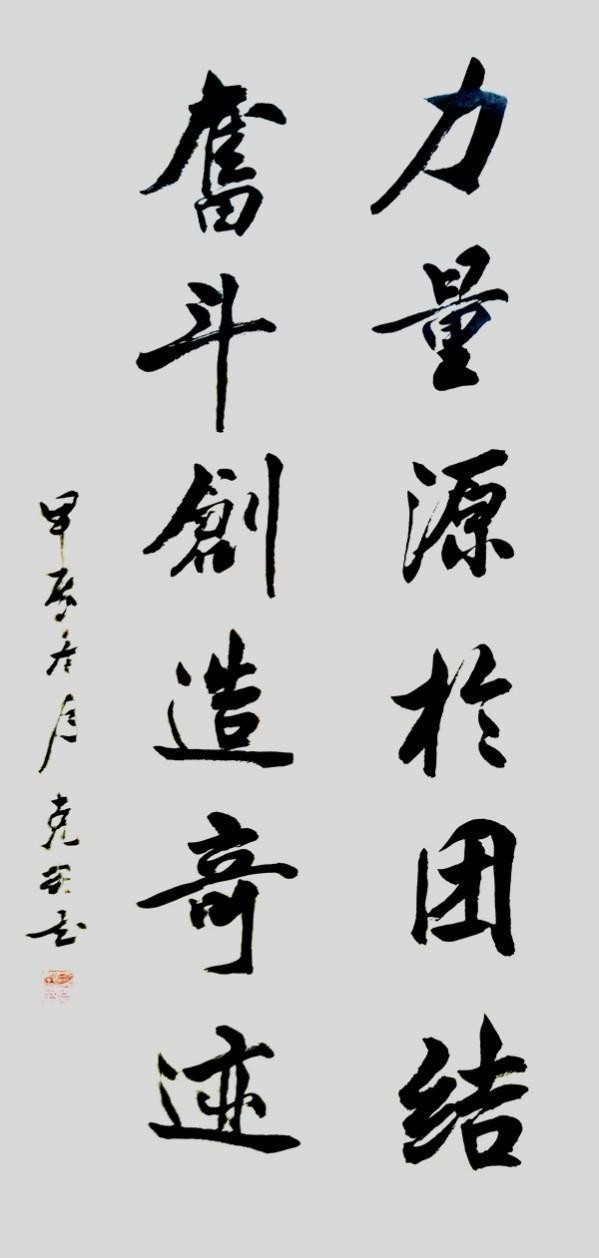 力量源於团结
奮斗創造奇迹
甲辰冬月克明书